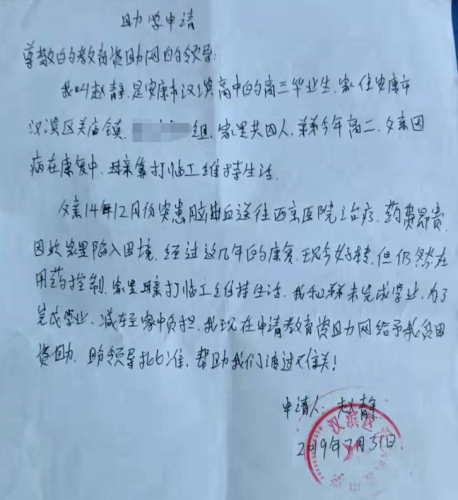 助学申请
尊敬的教育资助网的领导:
我叫赵静,是安康市汉滨高中的高三毕业生,家住安康市
汉滨区关庙镇,组,家里共四人,弟弟今年高二,父亲因
病在康复中,母亲靠打临工维持生活。
父亲14年12月份突患脑出血送往西京医院治疗,药费昂贵,
因此家里陷入困境,经过这几年的康复,现今好转,但仍然在
用药控制,家里母亲打临工维持生活,我和弟未完成学业,为了
完成学业,减轻家中负担,我现在申请教育资助网给予我
资助,领导批准,帮助我们渡过难关!
申请人:赵静
2019年7月31日.
汉滨区